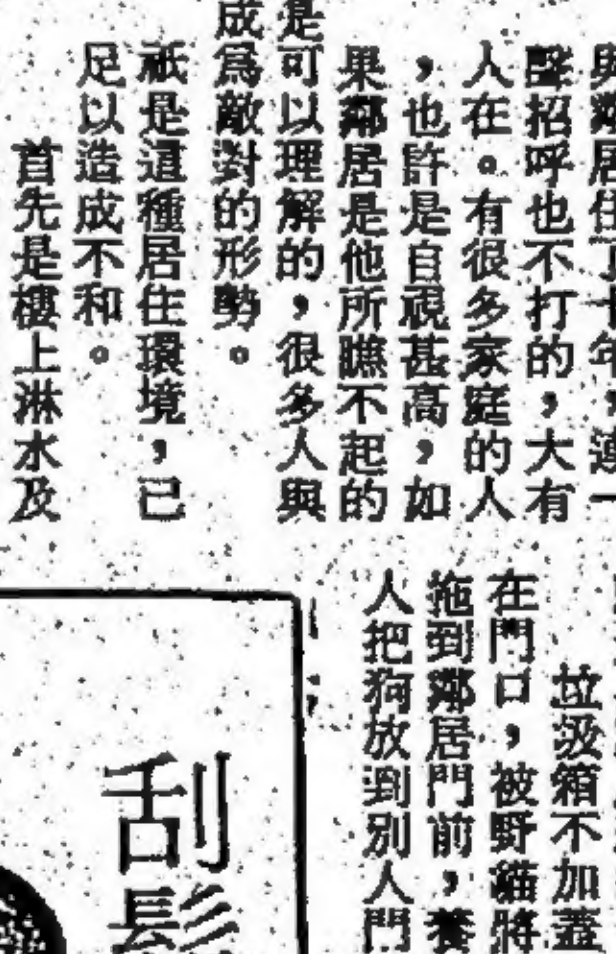 與鄰居住了十年,連一
聲招呼也不打的,大有
人在。有很多家庭的人
,也許是自視甚高,如
果鄰居是他所瞧不起的
是可以理解的,很多人與
成爲敵對的形勢。
祇是這種居住環境,已
足以造成不和。
首先是樓上淋水及
垃圾箱不加蓋
在門口,被野貓將
拖到鄰居門前,養
人把狗放到別人門
刮鬍